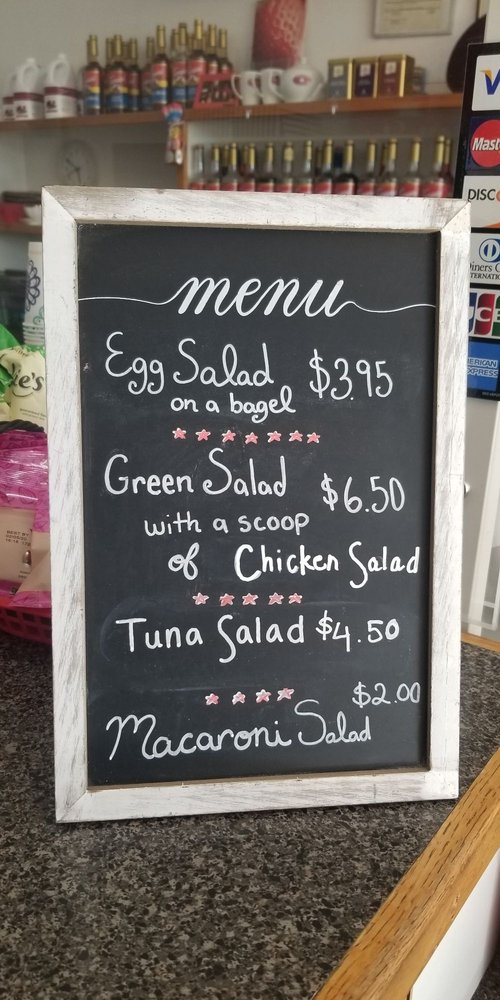 menu
Egg Salad $3.95
on a bagel
Green Salad $6.50
with a scoop
of Chicken Salad
Tuna Salad $4.50
$2.00
Macaroni Salad
V
Mast
DISC
Diners C
JCB
ERICAN
EXPRESS
ie's
BEST BY